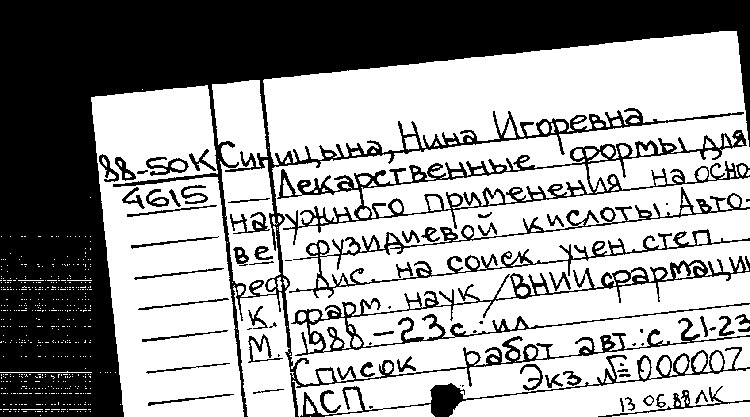 88-50К Синицына, Нина Игоревна.
4615 Лекарственные формы для
наружного применения на осно-
ве фузидиевой кислоты: Авто-
реф. дис. на соиск. учен. степ.
к. фарм. наук / ВНИИ фармации
М. 1988. – 23 с.: ил.
Список работ авт.: с. 21-23
ДСП. Экз. № 000007
13 05.88 ЛК